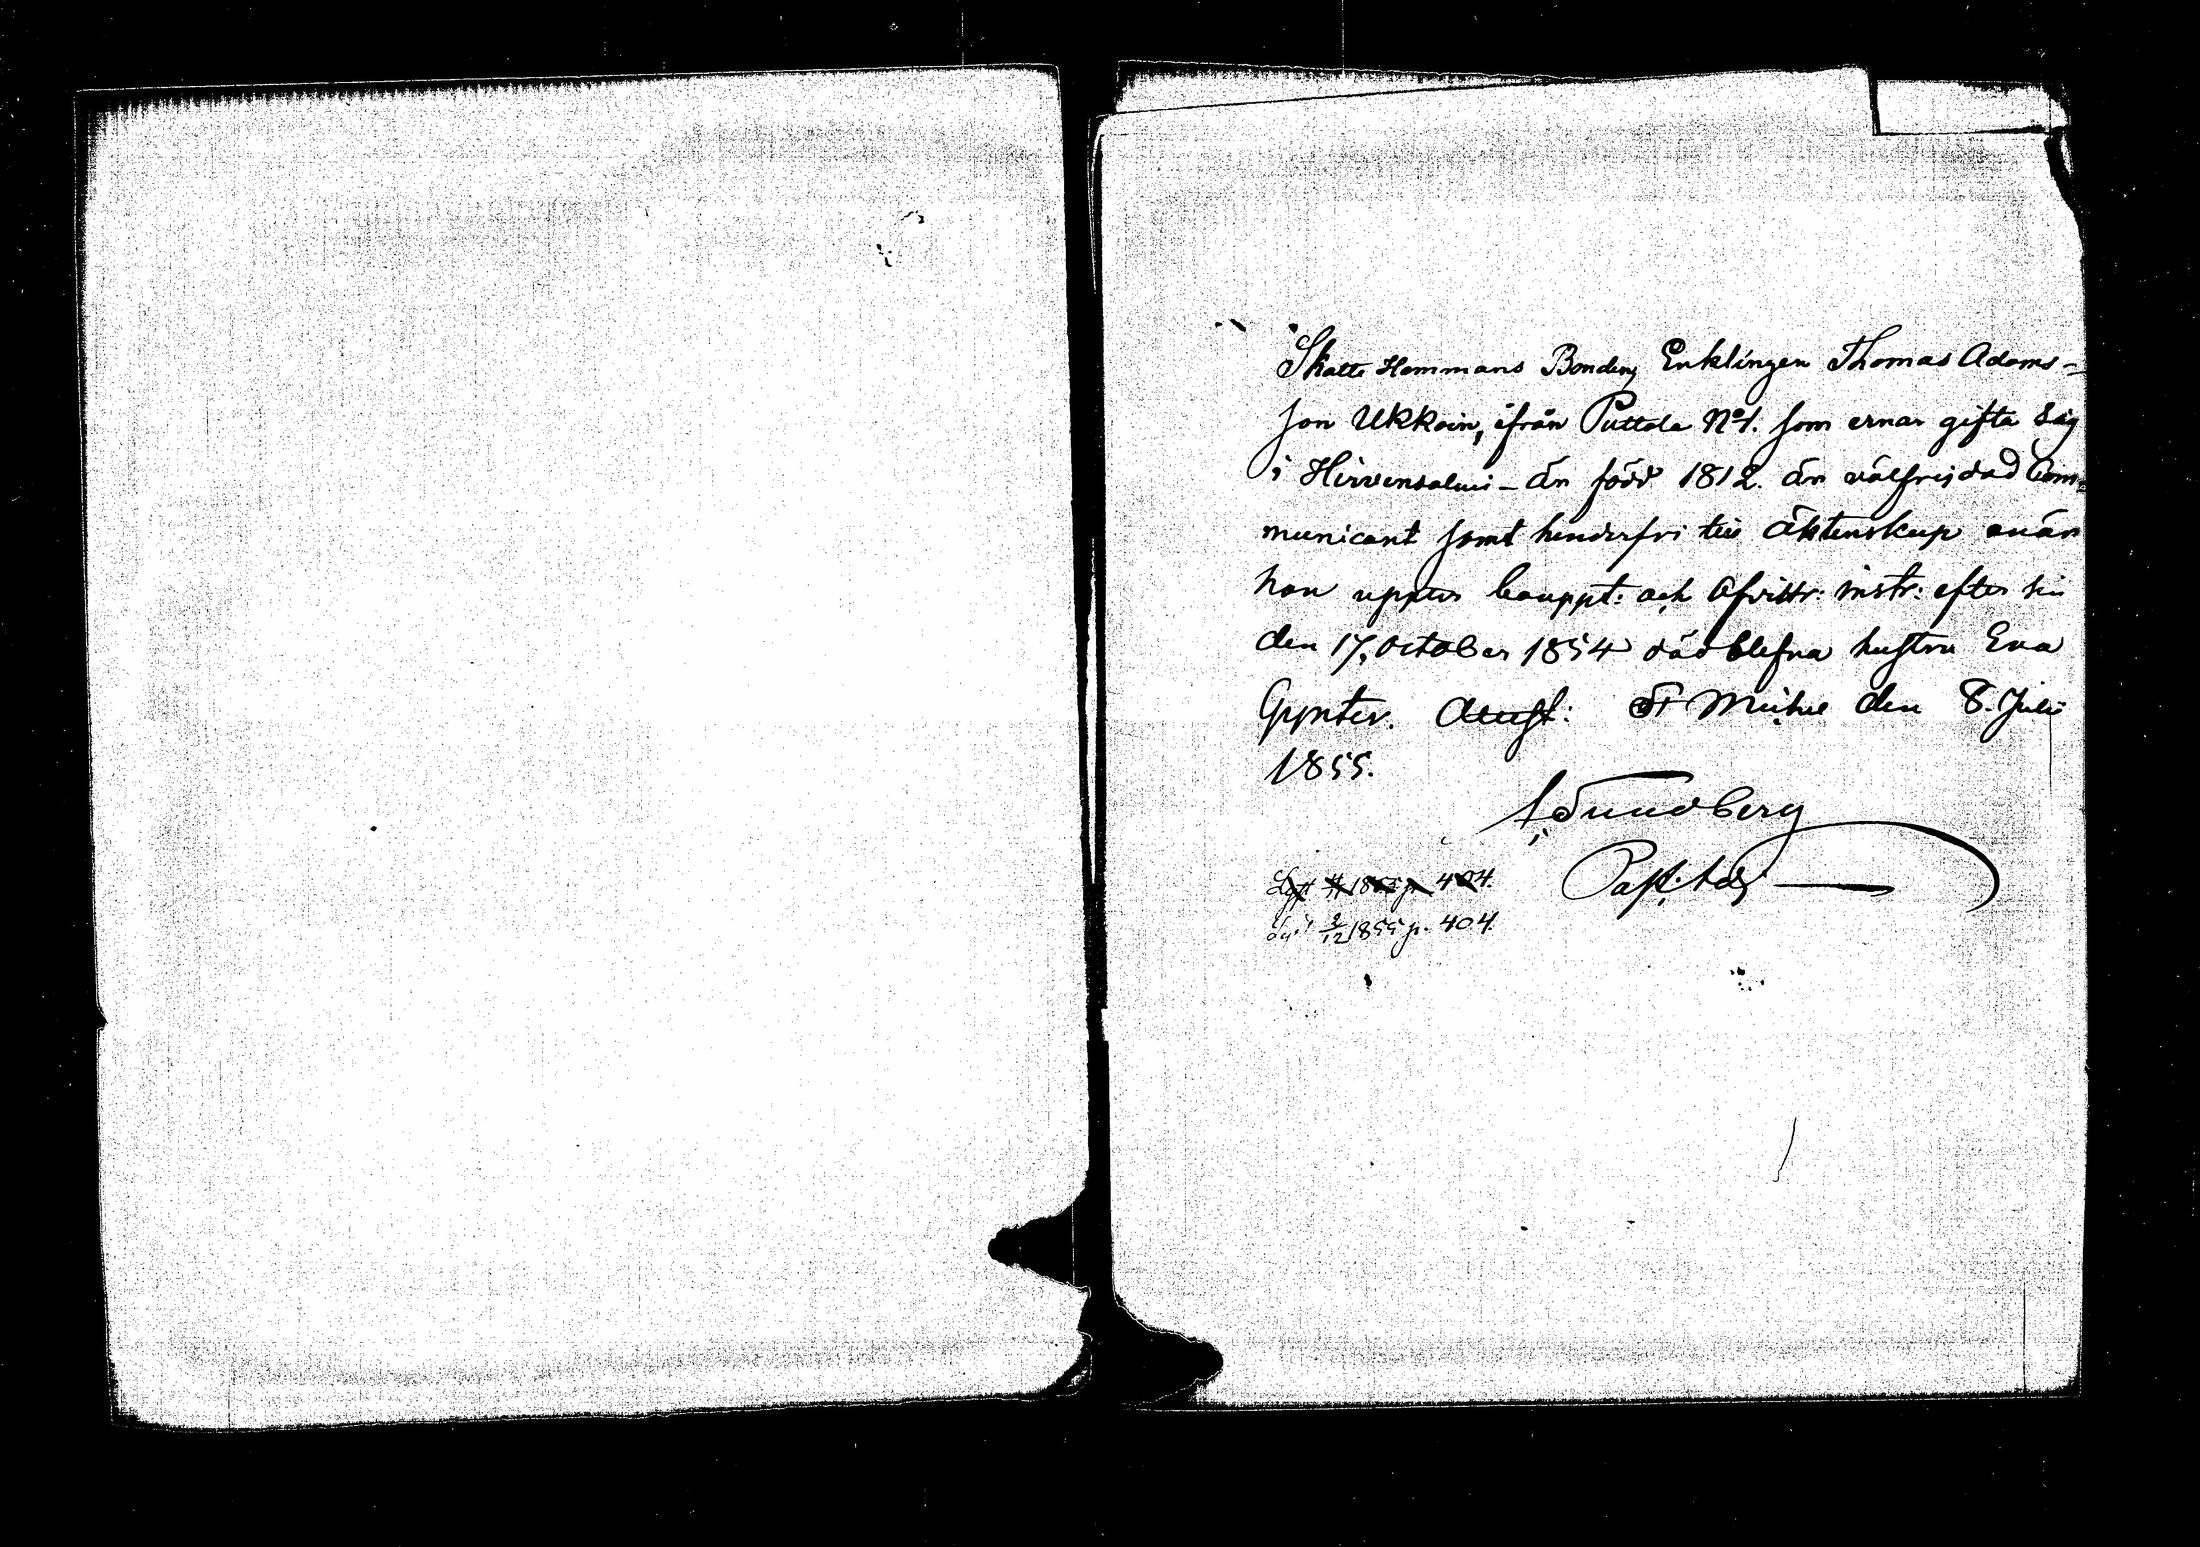 Skatte Hemmans Bonden, Enklingen Thomas Adams-
son Ukkoin, ifrån Puttola No 1. som ernar gifta sig
i Hirvensalmi - är född 1812. är välfrejdad Com-
municant samt hinderfri till äktenskap enär
han uppter bouppt: och Afvittr: instr: efter sin
den 17, october 1854 död blefna hustru Eva
Gynter. Attest: St Michel den 8. Juli
1855.
Sundberg
Past: Adj
1855 p. 404.
1855 p. 404.